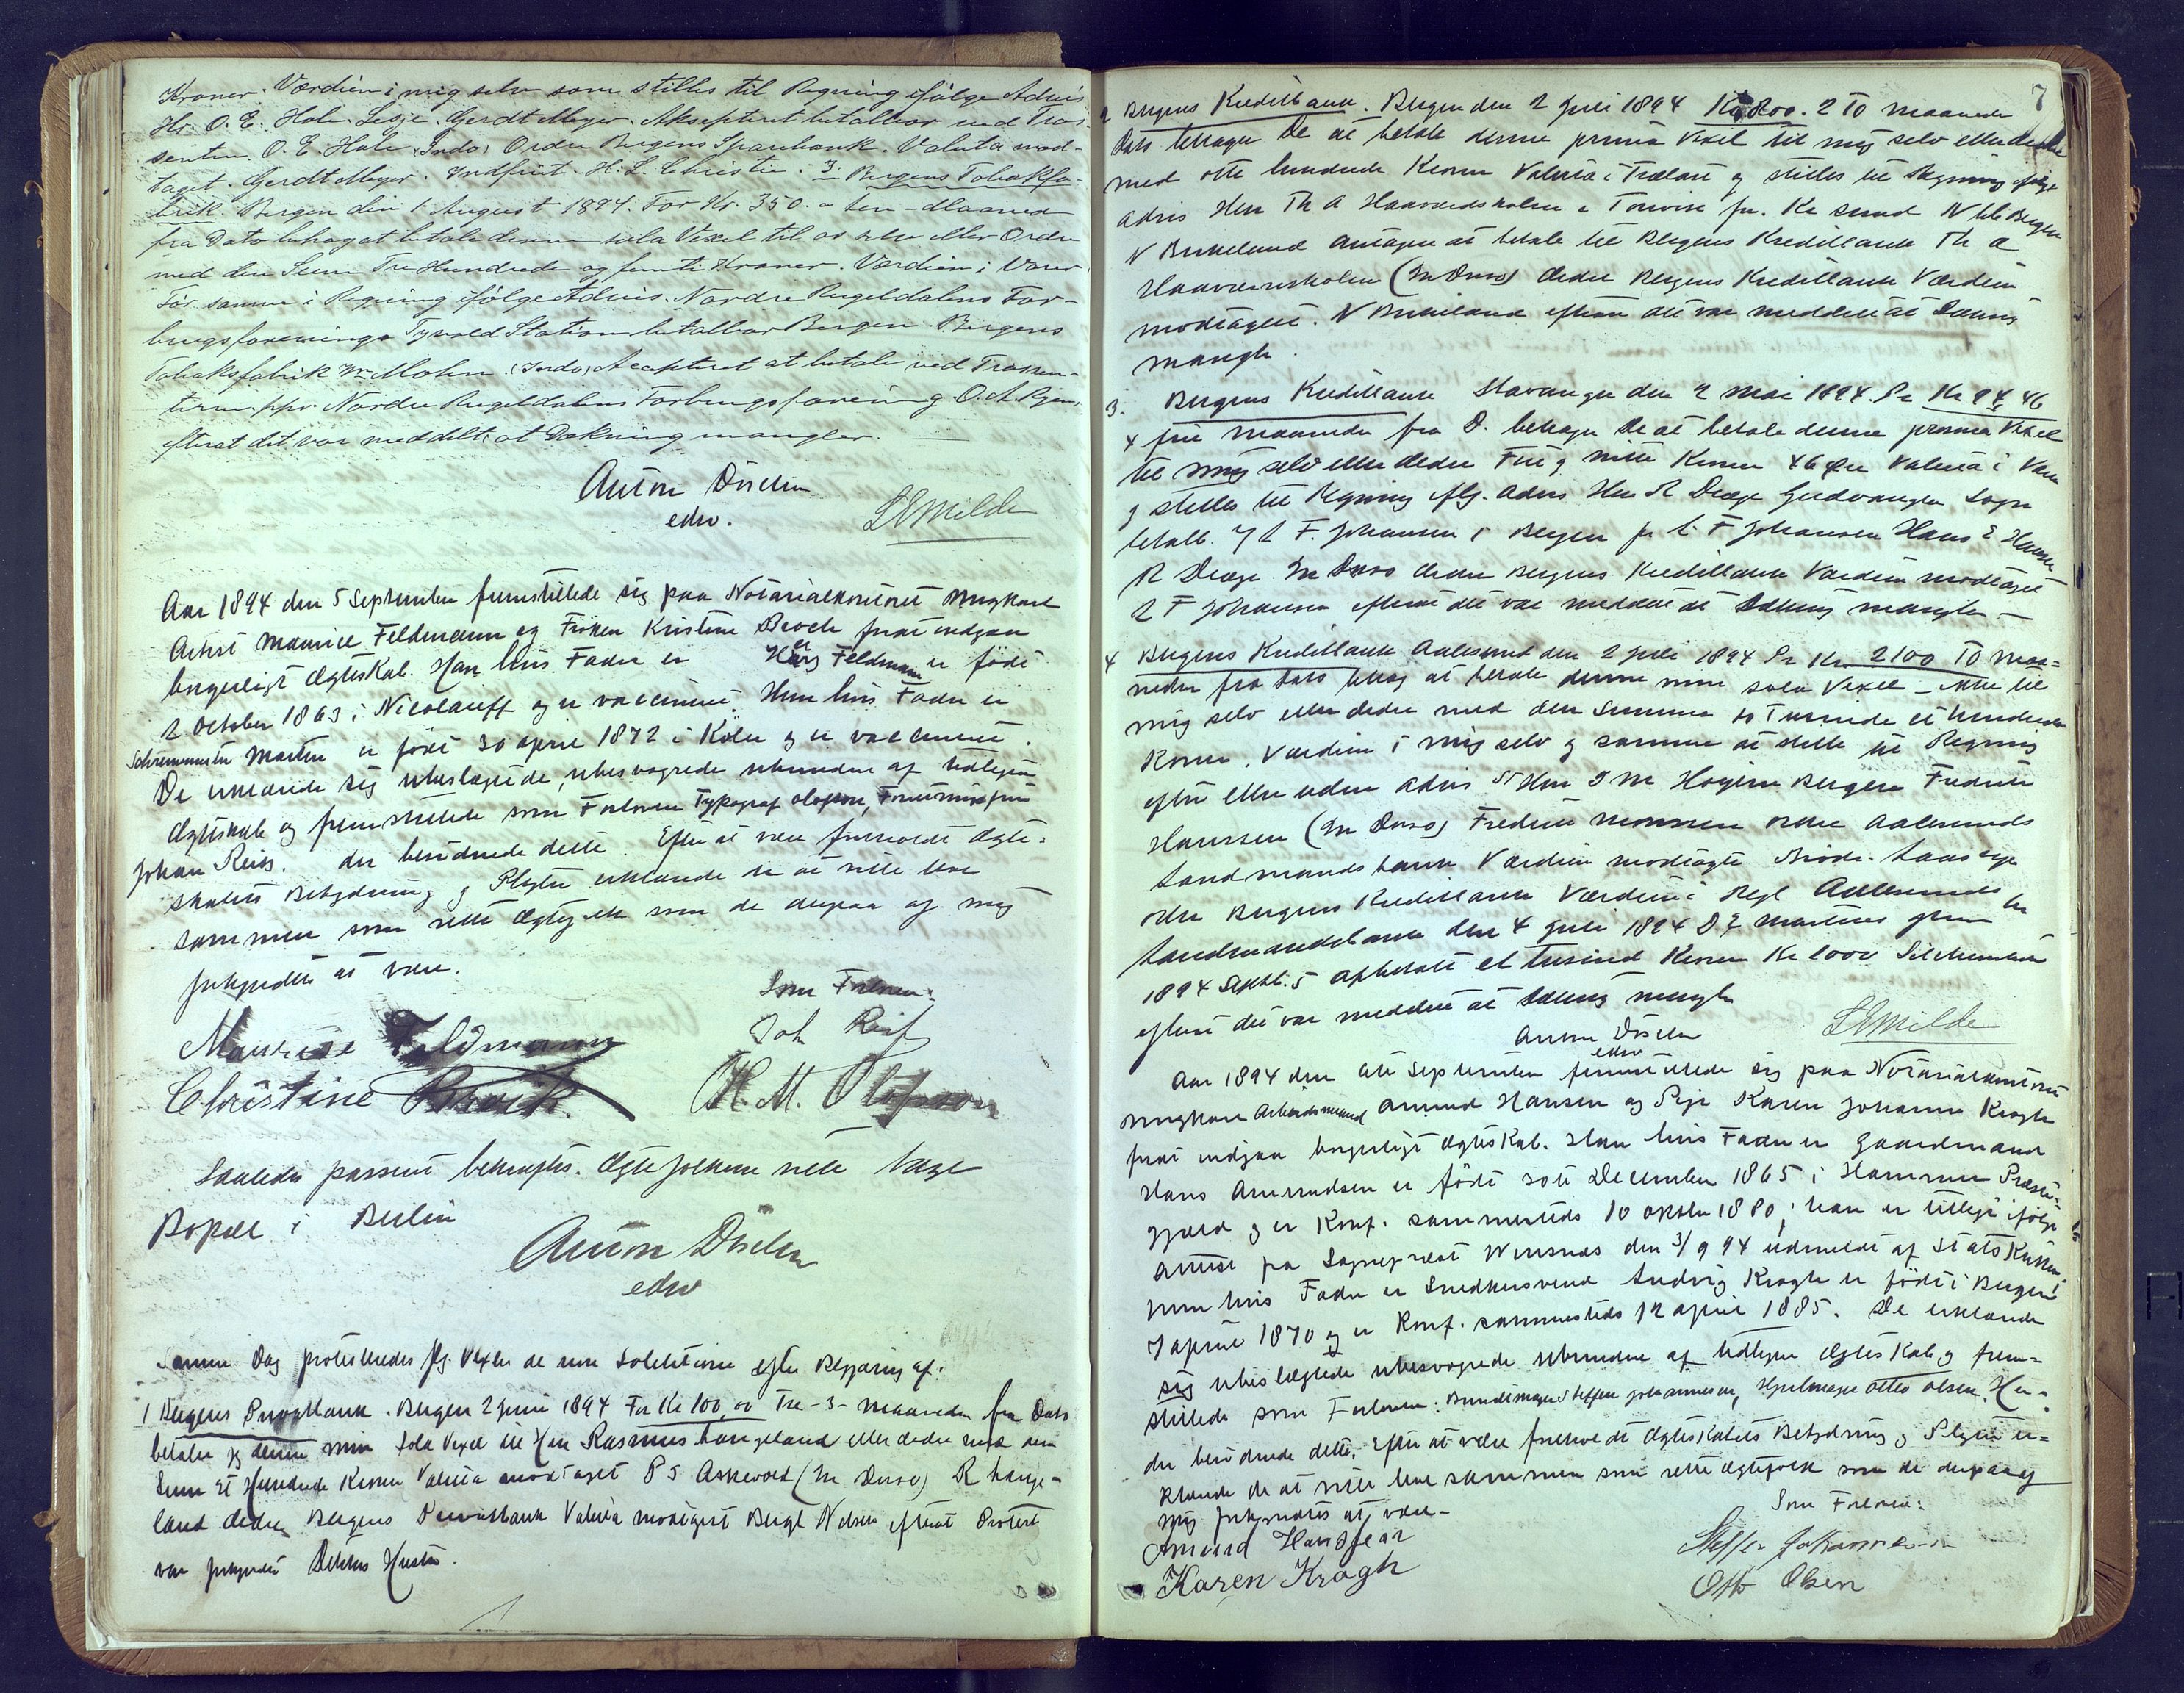 Kroner. Værdien i mig selv som stilles til Regning ifølge Advis
Hr. O. E. Hole. Lesje. Gerdt Meyer. Aksepteret betalbar ved Tras-
senten. O. E. Hole (Indo) Ordre Bergens Sparebank. Valuta mod-
taget. Gerdt Meyer. Indfriet. H. L. Christie. 3. Bergens Tobakfa-
brik. Bergen den 1 August 1894. For Kr. 350.- Maaned
fra Dato behag at betale denne sola Vexel til os selv eller Ordre
med den Sum Tre Hundrede og femti Kroner. Værdien i Varer
Før samme i Regning ifølge Advis. Nordre Ringeldalens For-
brugsforenings Tyvold Station betalbar Bergen. Bergens
Tobaksfabrik Wm Mohn. (Indo) Accepteret at betale ved Trassen-
ten ppr. Nordre Ringeldalens Forbrugsforening O. A.
efterat det var meddelt, at Dækning mangler.
Anton Döscher
edsv.
S E Milde
Aar 1894 den 5 September fremstillede sig paa Notarialkontoret Ungkarl
Artist Maurice Feldmann og Frøken Kristine Broch for at indgaa
borgerligt Ægteskab. Han hvis Fader er Herz Feldmann er født
2 October 1863 i Nicolaieff og er vaccineret. Hun hvis Fader er
Schreinmester Martin er født 30 april 1872 i Köln og er vaccineret.
De erklærede sig ubeslægtede, ubesvogrede ubundne af tidligere
Ægteskab og fremstillede som Forlovere Typograf Olafson,
Johan Reiss. der bevidnede dette. Efter at være foreholdt Ægte-
skabets Betydning og Pligter erklærede de at ville leve
sammen som rette Ægtefolk som de derpaa af mig
forkyndtes at være.
Som Forlovere:
Maurice Feldmann Joh Reiss
Christine Broich. H. M. Olafson
Saaledes passeret bekræftes. Ægtefolkene ville tage
Bopæl i Berlin
Anton Döscher
edsv
Samme Dag protesteredes flg. Vexler de non Solutione efter Begjæring af:
1 Bergens Privatbank. Bergen 2 Juni 1894 For Kr 100,00 Tre -3- Maaneder fra Dato
betaler jeg denne min Sola Vexel til Herr Rasmus Langeland eller Ordre med den
Sum Et Hundrede Kroner Valuta modtaget P S Askevold (In Dorso) R Lange-
land Ordre Bergens Privatbank Valuta modtaget Bergt Nelsen efterat Protest
var forkyndt Dennes Hustru.
7
2 Bergens Kreditbank. Bergen den 2 Juli 1894 Kr 800. 2 To Maaneder
Dato behager De at betale denne prima Vexel til mig selv eller Ordre
med otte hundrede Kroner Valuta i Trælast og stilles til Regning ifølge
advis Herr Th A Haavardsholm N Birkeland Bergen
N Birkeland antages at betale til Bergens Kreditbank Th A
Haavardsholm (In Dorso) Ordre Bergens Kreditbank Værdien
modtaget. N Birkeland efterat det var meddelt at Dækning
mangler.
3. Bergens Kreditbank Stavanger den 2 Mai 1894. Pr Kr 94,46
4 fire Maaneder fra D. behager De at betale denne prima Vexel
til mig selv eller Ordre Fire og nitti Kroner 46 Øre Valuta i Varer
og stilles til Regning iflg. advis Herr R Dræge Gudvangen Sogn
betalb. F. Johansen i Bergen pr L F Johansen Hans E Hansen
R Dræge In Dorso Ordre Bergens Kreditbank Værdien modtaget
L F Johansen efterat det var meddelt at Dækning mangler —
4 Bergens Kreditbank Aalesund den 2 Juli 1894 Pr Kr 2100 To Maa-
neder fra Dato behag at betale denne min sola Vexel – ikke til
mig selv eller Ordre med den Summa to Tusinde et hundrede
Kroner. Værdien i mig selv og samme at stille til Regning
efter eller uden advis Herr I M Høgien Bergen Fredrik
Hanssen (In Dorso) Fredrik Hanssen Ordre Aalesunds
Landmandsbank Værdien modtaget
Ordre Bergens Kreditbank Værdien i Regl Aalesunds
Landmandsbank den 4 Juli 1894 D E Martens
1894 Septbr. 5 afbetalt et tusind Kroner Kr 1000
efterat det var meddelt at Dækning mangler
Anton Döscher
edsv
S E Milde
Aar 1894 den 6te September fremstillede sig paa Notarialkontoret
Ungkarl Arbeidsmand Amund Hansen og Pige Karen Johanne Krogh
for at indgaa borgerligt Ægteskab. Han hvis Fader er Gaardmand
Hans Amundsen er født 30te December 1865 i Hammer Præste-
gjeld og er Konf. sammesteds 10 oktbr 1880; han er tillige ifølge
attest fra Sognepræst den 3/9 94 udmeldt af Statskirken
Hun hvis Fader er Snedkersvend Ludvig Krogh er født i Bergen
7 april 1870 og er Konf. sammesteds 12 april 1885. De erklærede
sig ubeslægtede ubesvogrede ubundne af tidligere Ægteskab og frem-
stillede som Forlovere: Buntmager Steffen Johannesen, Hjulmager Otto Olsen
der bevidnede dette. Efter at være foreholdt Ægteskabets Betydning og Pligter er-
klærede de at ville leve sammen som rette Ægtefolk som de derpaa af
mig forkyndtes at være –
Som Forlovere:
Amund Hansen Steffen Johannesen
Karen Krogh Otto Olsen